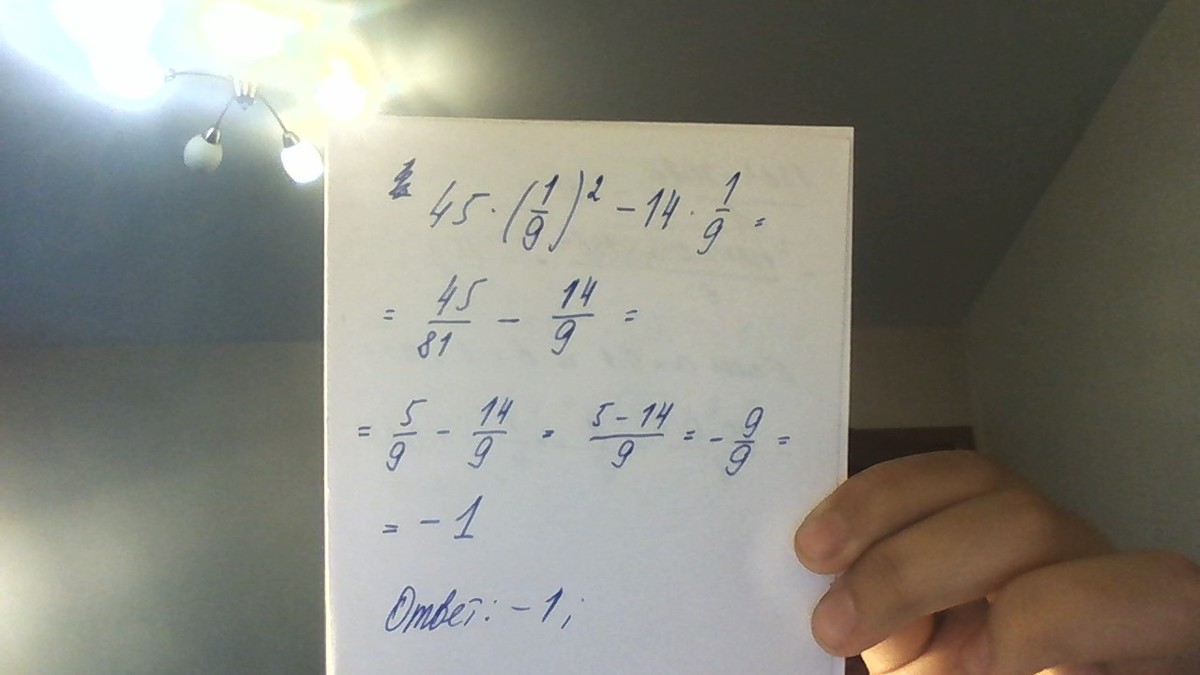 45 · (1/9)² - 14 · 1/9 =
= 45/81 - 14/9 =
= 5/9 - 14/9 = 5-14/9 = - 9/9 =
= - 1
Ответ: - 1;